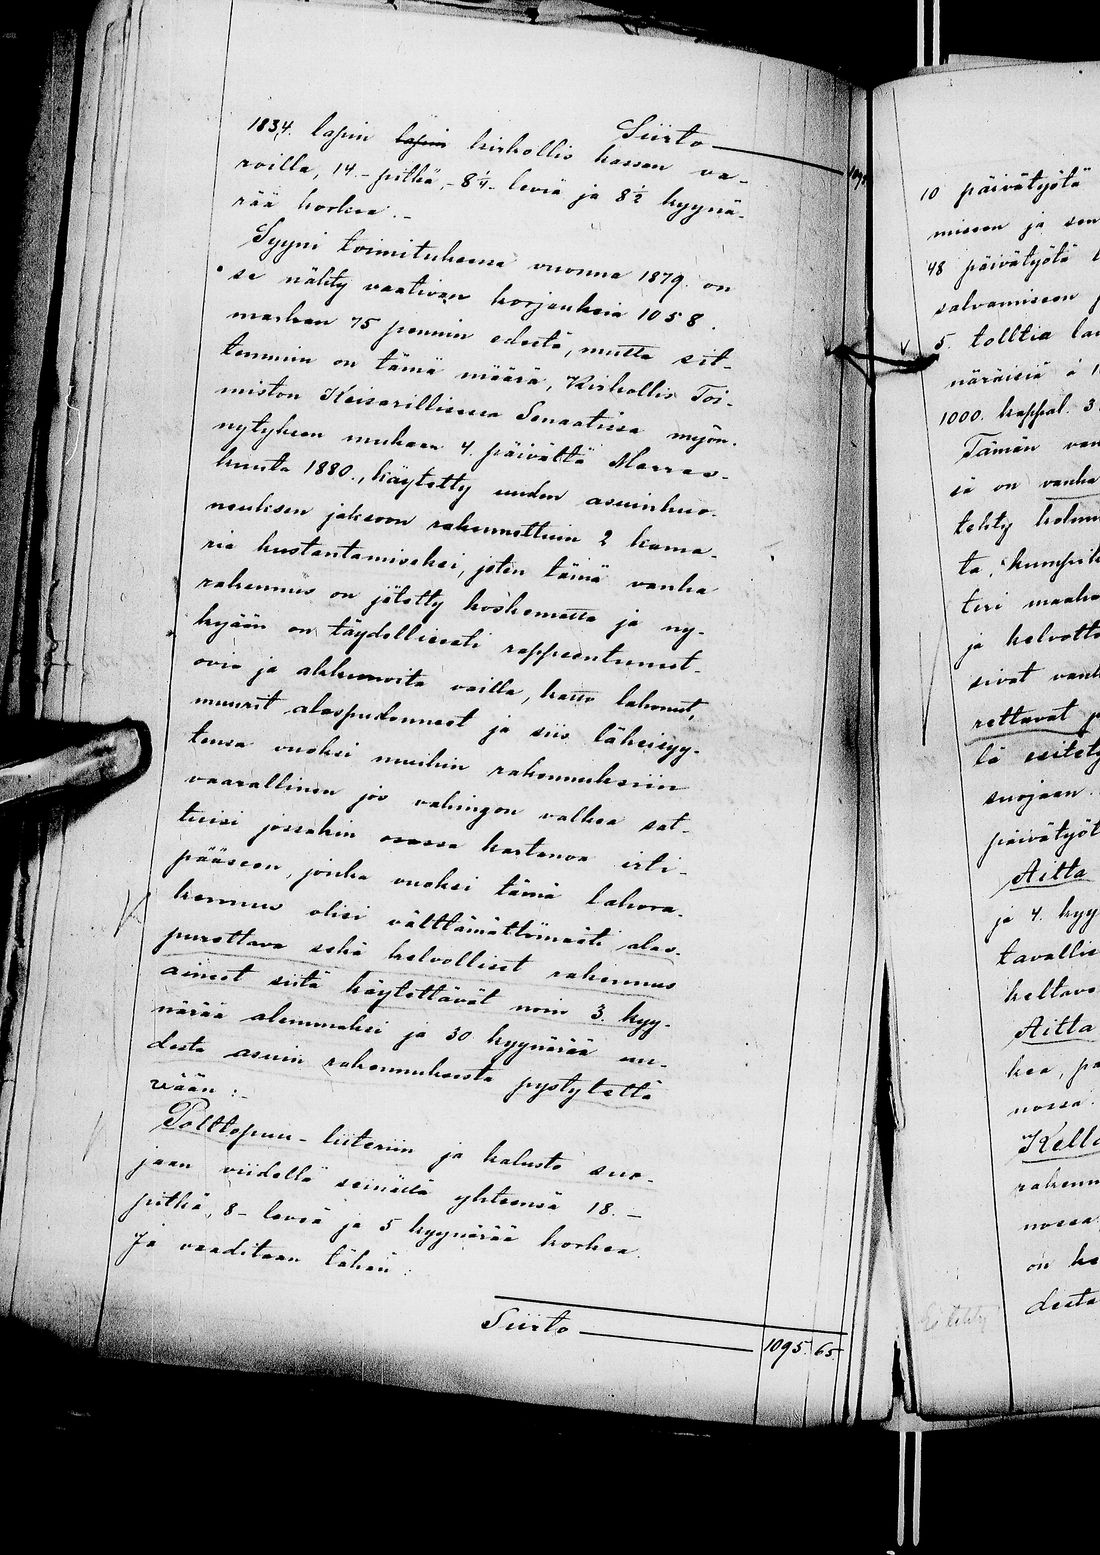 Siirto — 109
1834. lapin lapin kirkollis kassan va-
roilla, 14.- pitkä,- 8 1/4.- leviä ja 8 1/2 kyynä-
rää korkea.-
Syyni toimituksessa vuonna 1879. on
se nähty vaativan korjauksia 1058.
markan 75 pennin edestä, mutta sit-
temmin on tämä määrä, Kirkollis Toi-
miston Keisarillisessa Senaatissa myön-
nytyksen mukaan 4. päivältä Marras-
kuuta 1880., käytetty uuden asuinhuo-
neuksen jaksoon rakennettuin 2 kama-
rin kustantamiseksi, joten tämä vanha
rakennus on jätetty koskematta ja ny-
kyään on täydellisesti rappeentunut-
ovia ja akkunoita vailla, katto lahonut,
muurit alaspudonneet ja siis läheisyy-
tensä vuoksi muihin rakennuksiin
vaarallinen jos vahingon valkea sat-
tuisi jossakin osassa kartanoa irti-
pääseen, jonka vuoksi tämä lahora-
kennus olisi välttämättömästi alas-
purettava sekä kelvolliset rakennus
aineet siitä käytettävät noin 3. kyy-
närää alemmaksi ja 30 kyynärää uu-
desta asuin rakennuksesta pystytettä
vään:-
Polttopuu-liiteriin ja kalusto suo-
jaan viidellä seinällä yhteensä 18.-
pitkä, 8- leviä ja 5 kyynärää korkea.
Ja vaaditaan tähän:
Siirto — 1095. 65.
10 päivätyötä
miseen ja sen
48 päivätyötä
salvamiseen
5. tolttia lau
näräisiä á 1
1000. kappal. 3.
Tämän van
sä on vanha
tehty kolme
ta,
teri maaka
ja kelvotto
sivat vanh
rettavat p
lä esitety
suojaan.
päivätyöt
Aitta
ja 4. kyy
tavallis
keltava
Aitta
kea, pa
nossa.
Kello
rakenn
nossa.
on ka
desta
Ei tehty